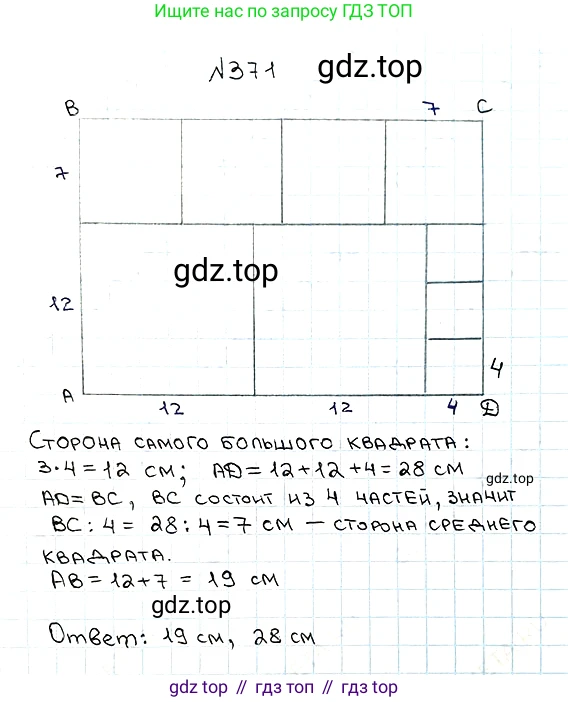 Ищите нас по запросу ГДЗ ТОП
№371
gdz.top
B
7
C
7
gdz.top
12
A
12
12
4
4
D
СТОРОНА САМОГО БОЛЬШОГО КВАДРАТА:
3·4=12 СМ; AD=12+12+4=28 СМ
gdz.top
AD=BC, BC СОСТОИТ ИЗ 4 ЧАСТЕЙ, ЗНАЧИТ
BC:4= 28:4=7 СМ — СТОРОНА СРЕДНЕГО
КВАДРАТА.
AB=12+7 = 19 СМ
gdz.top
Ответ: 19 см, 28 см
gdz top // гдз топ // gdz.top